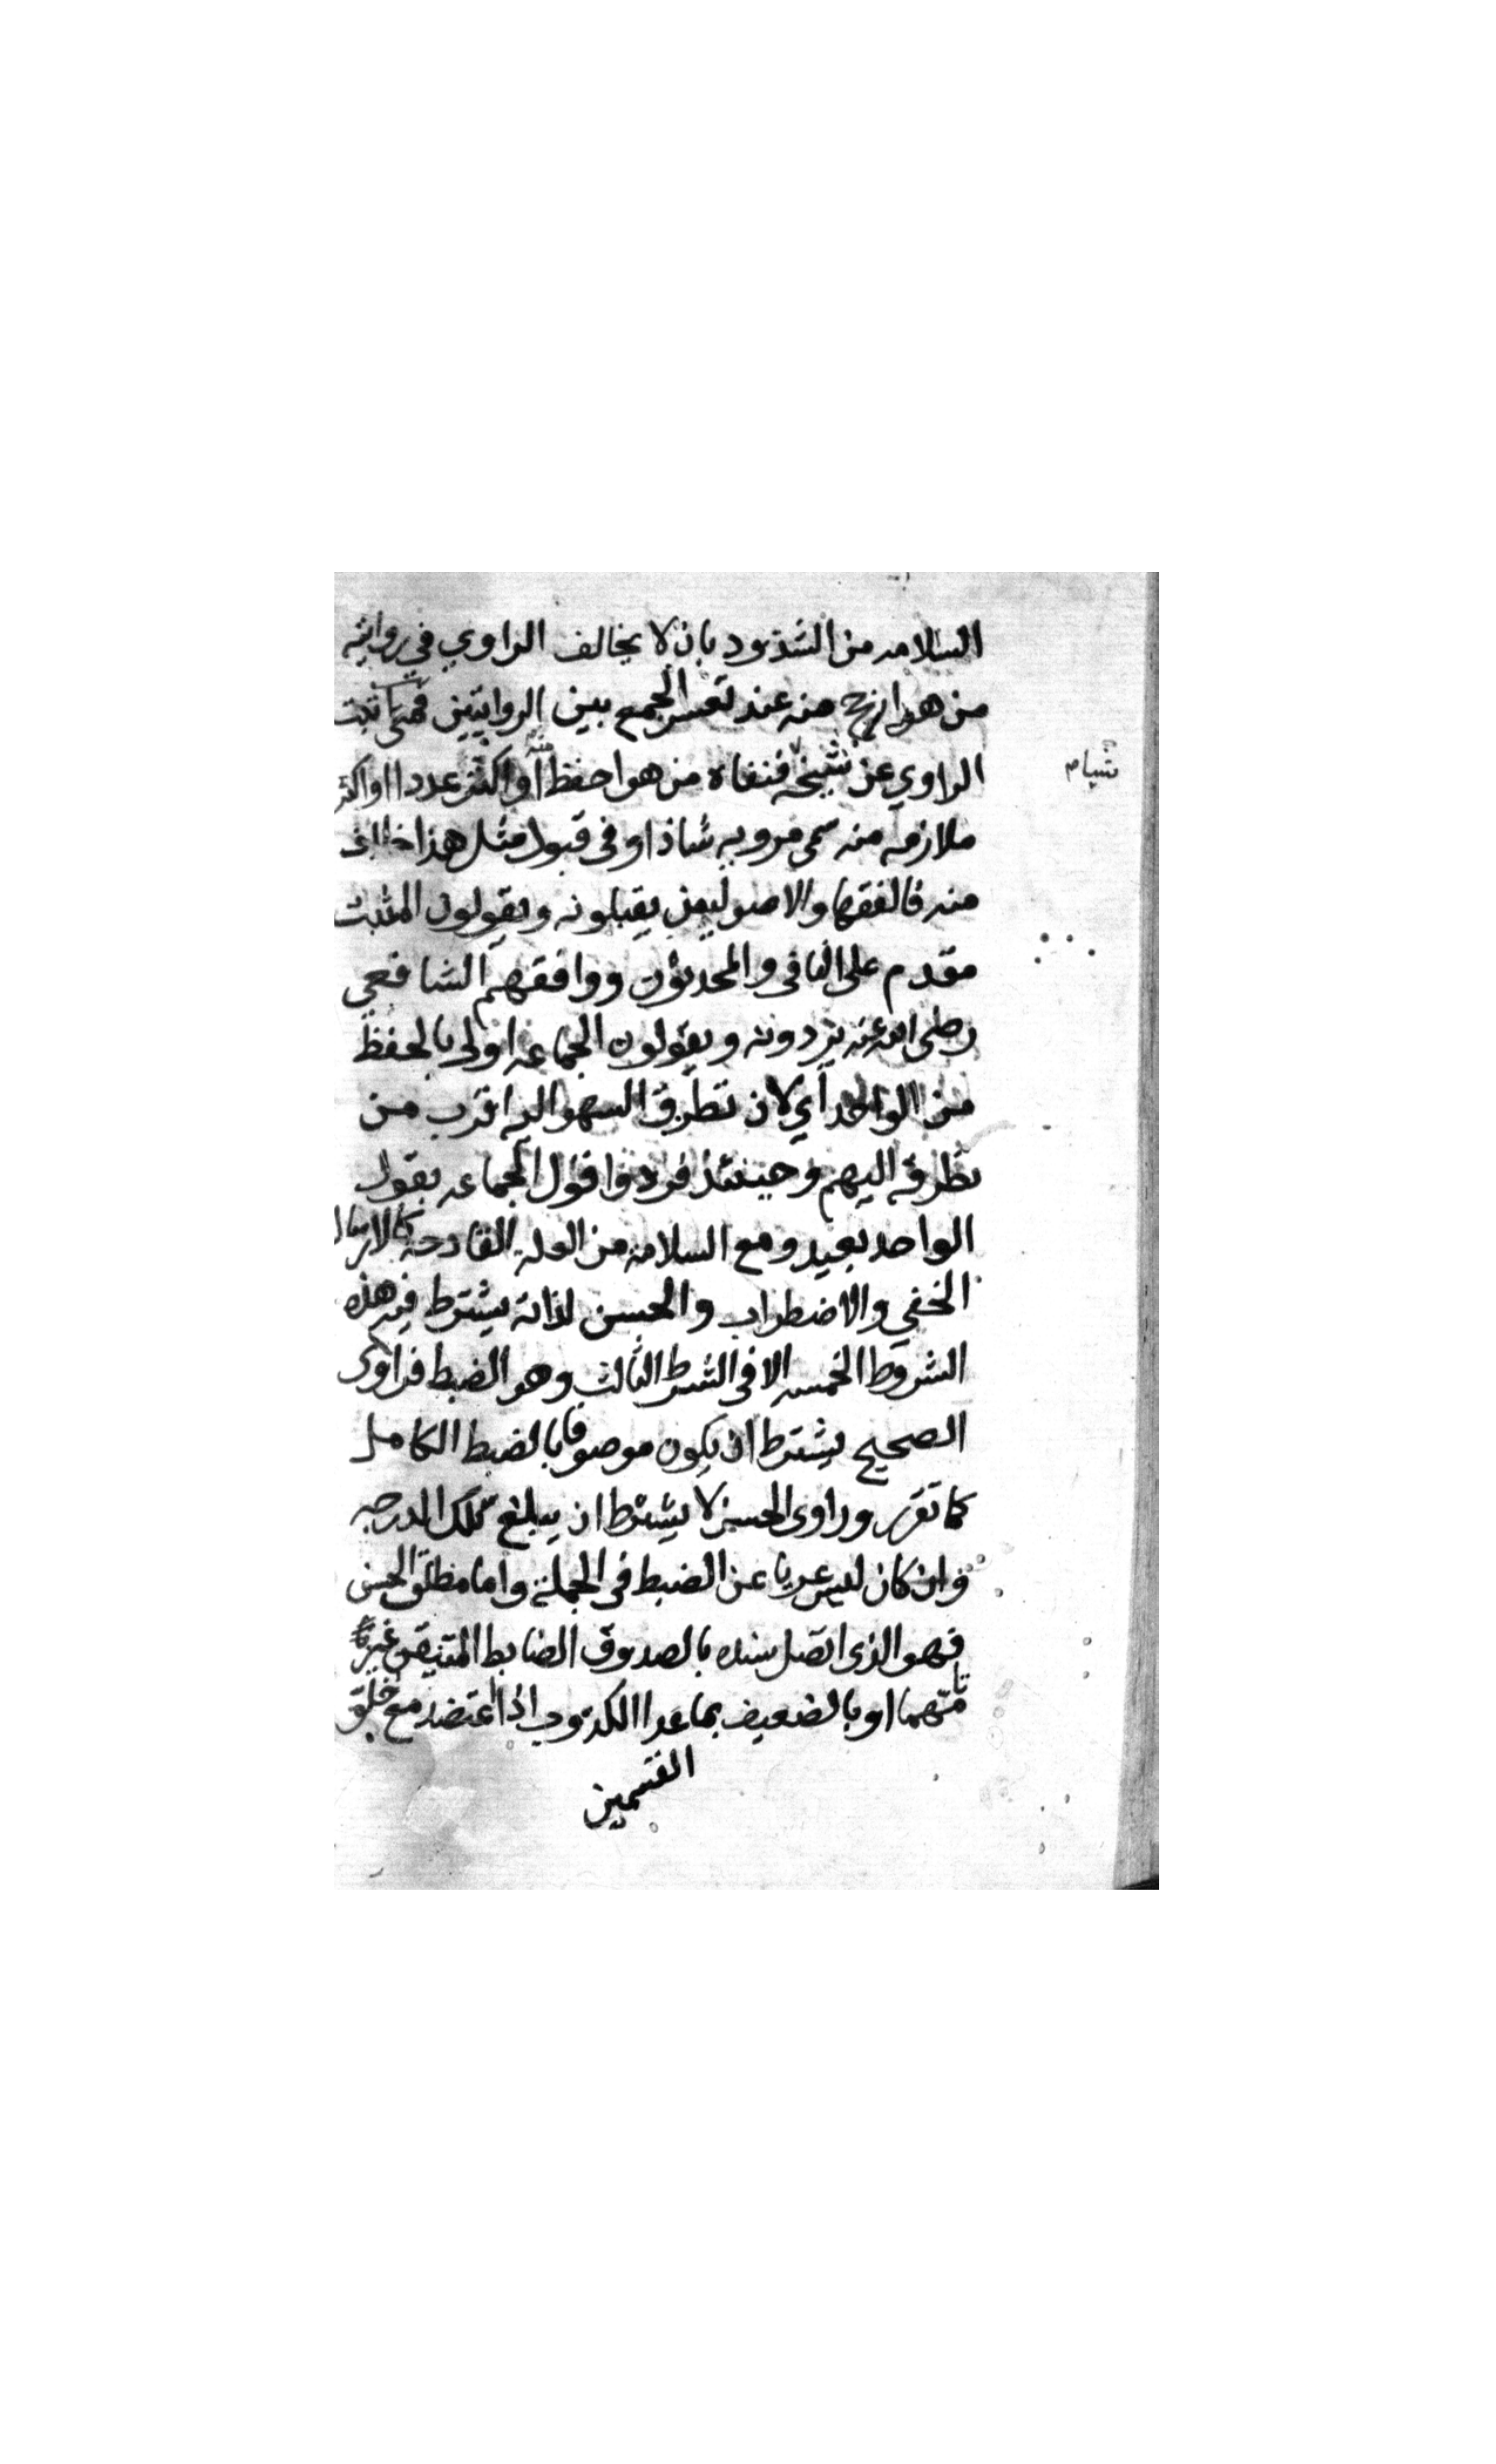 السلامه من الشذوذ بان لا يخالف الراوي في روايته
من هو ارجح منه عند تعسر الجمع بين الروايتين فمتى اثبت
الراوي عن شيخه فنفاه من هو احفظ او اكثر عددا او اكثر
ملازمه منه سمى مرويه شاذا وفى قبول مثل هذا خلاف
منه فالفقها والاصوليين يقبلونه ويقولون المثبت
مقدم على النافى والمحدثون ووافقهم الشافعي
رضى الله عنه يردونه ويقولون الجماعه اولى بالحفظ
من الواحد اي لان تطرق السهو اليه اقرب من
تطرقه اليهم وحينئذ فرد قول الجماعه بقول
الواحد بعيد ومع السلامه من العله القادحة كالارسال
الخفي والاضطراب والحسن لذاته يشترط فيه هذه
الشروط الخمسه الا فى الشرط الثالث وهو الضبط فراوى
الصحيح يشترط ان يكون موصوفا بالضبط الكامل
كما تقرر وراوى الحسن لا يشترط ان يبلغ تلك الدرجه
وان كان ليس عريا عن الضبط فى الجملة واما مطلق الحسن
فهو الذى اتصل سنده بالصدوق الضابط المتيقن غير
تامهما او بالضعيف بما عدا الكذوب اذا اعتضد مع خلو
القسمين